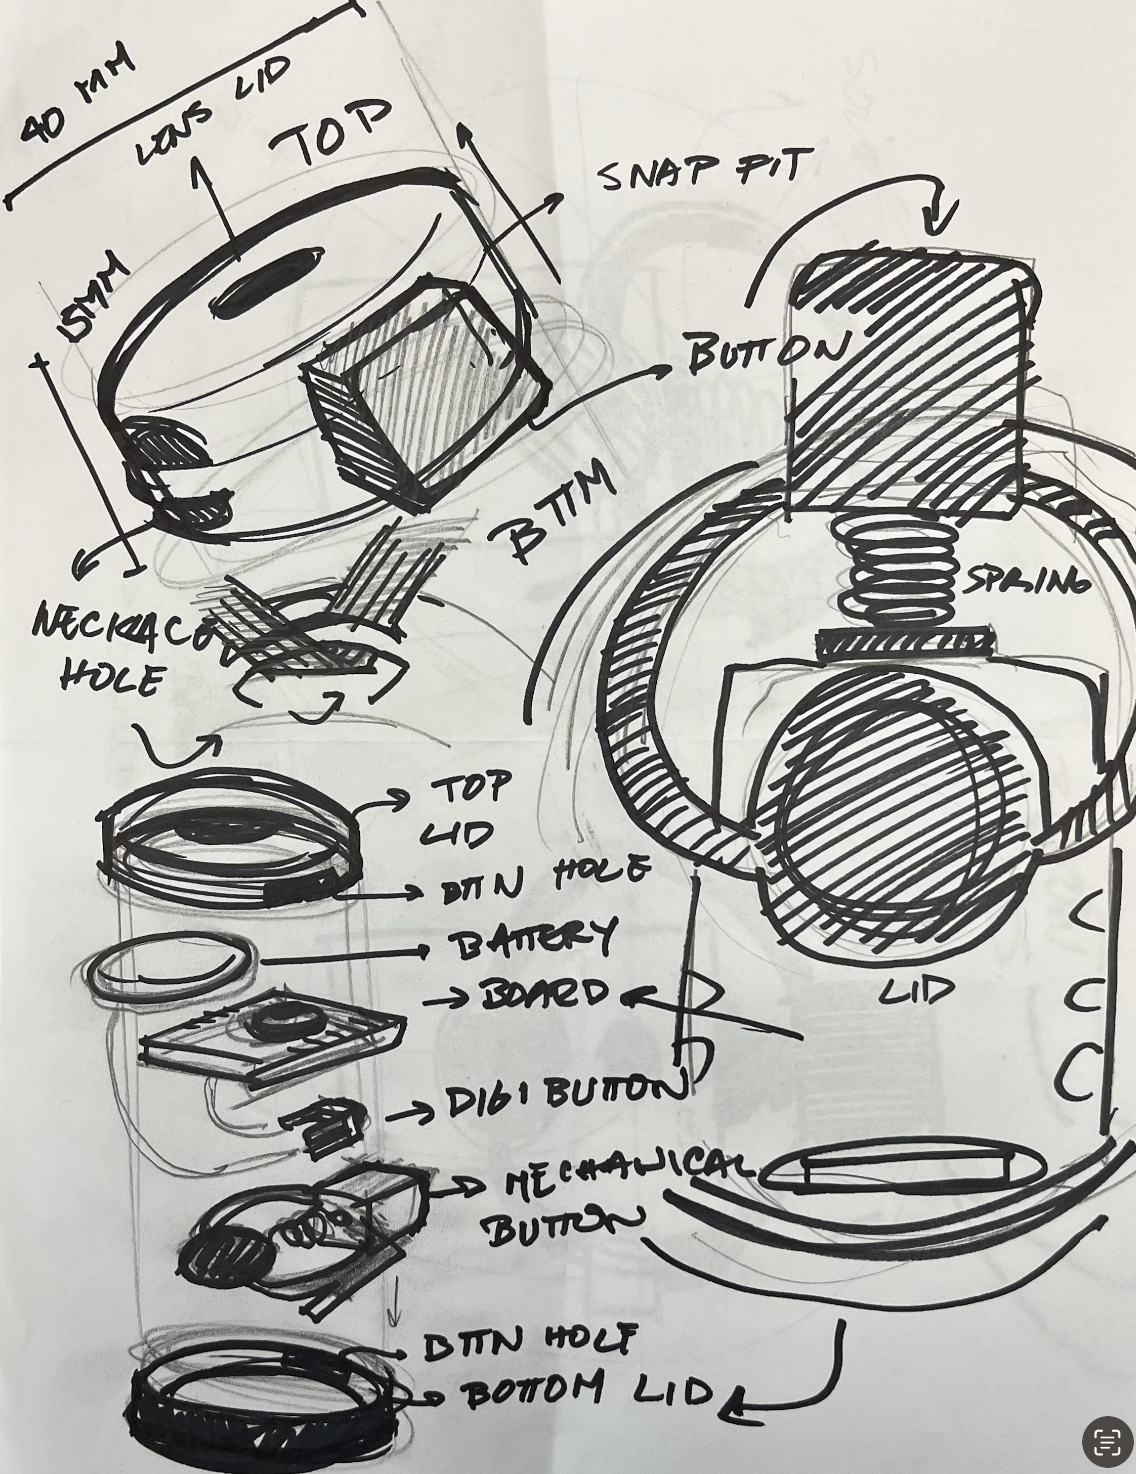 40 MM
LENS LID
TOP
SNAP FIT
15MM
BUTTON
BTTM
SPRING
NECKLACE
HOLE
TOP
LID
BTTN HOLE
BATTERY
BOARD
LID
DIGI BUTTON
MECHANICAL
BUTTON
BTTN HOLE
BOTTOM LID